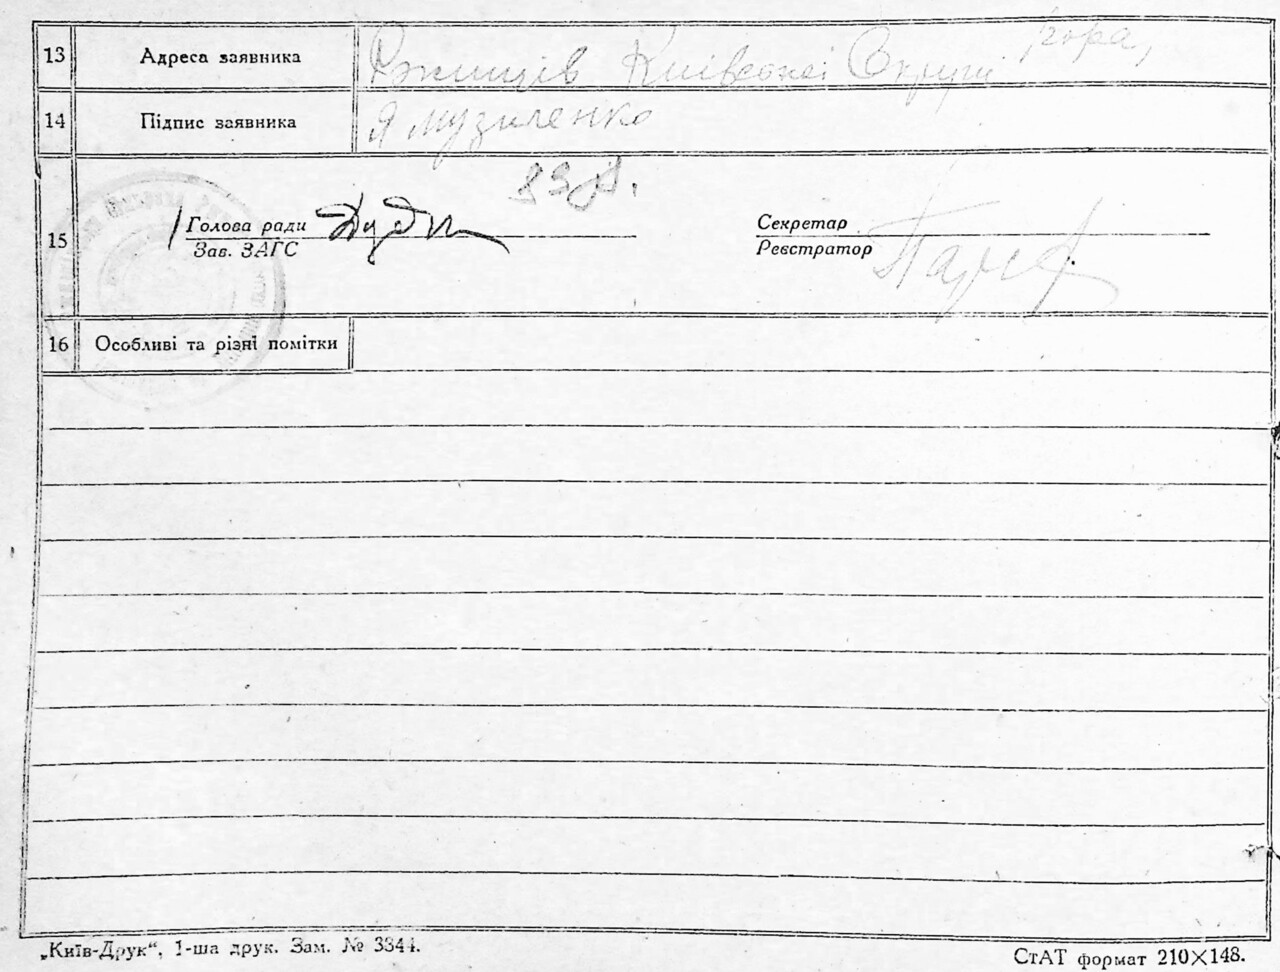 13 Адреса заявника Ржищів Київської Округи гора,
14 Підпис заявника Я Музиленко
15 Голова ради
Зав. ЗАГС
Секретар
Реєстратор
16 Особливі та різні помітки
„Київ-Друк“, 1-ша друк. Зам. № 3344.
СтАТ формат 210×148.